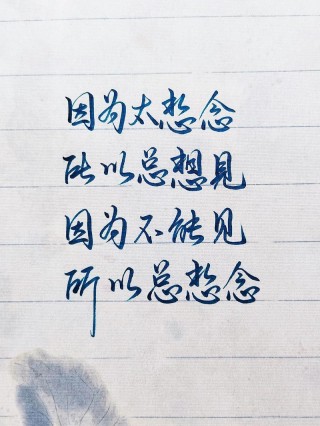 因为太想念
所以总想見
因为不能见
所以总想念